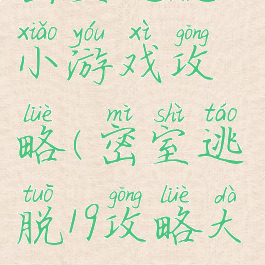 xiǎo yóu xì gōng
小游戏攻
lüè mì shì táo
略(密室逃
tuō gōng lüè dà
脱19攻略大